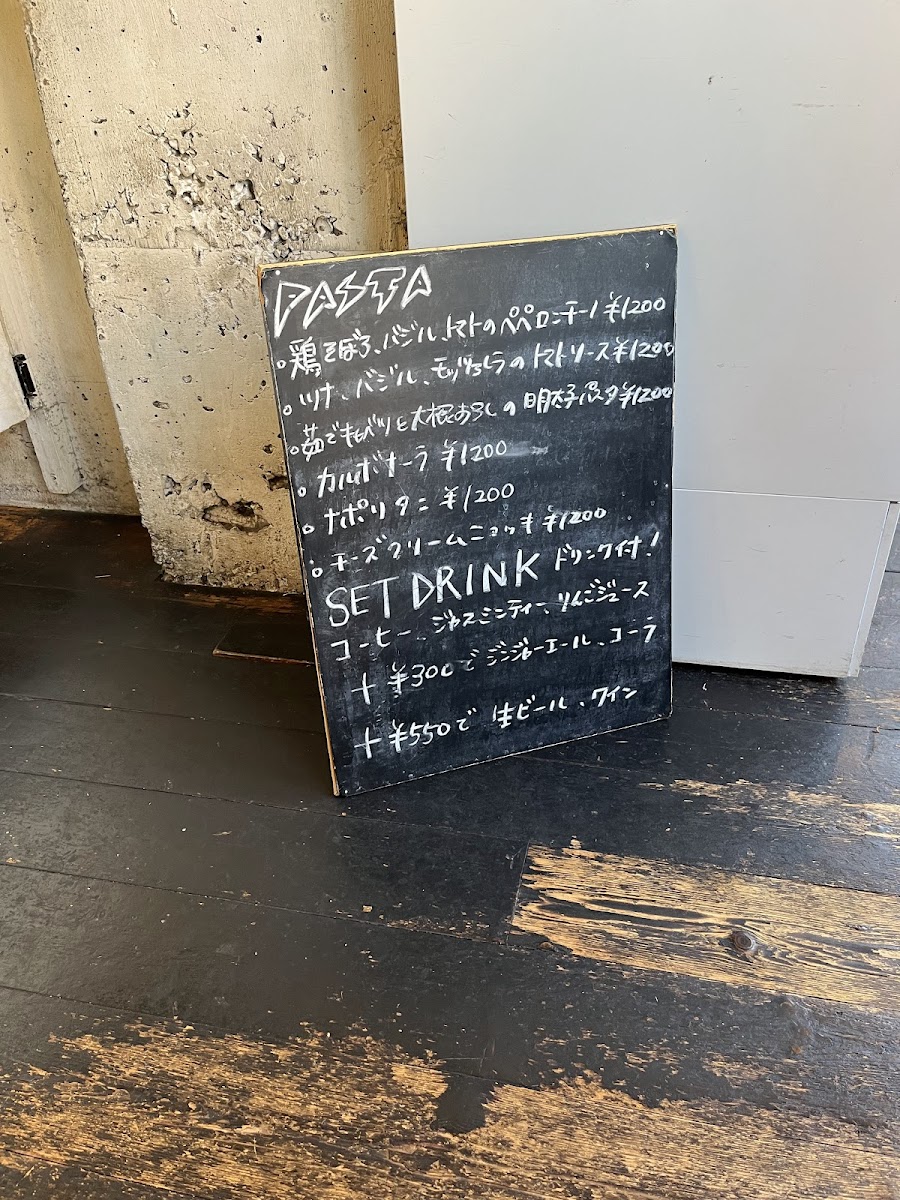 PASTA
。鶏そぼろ、バジル、トマトのペペロンチーノ ¥1200
。ツナ、バジル、モッツァレラのトマトソース ¥1200
。茹でキャベツと大根おろしの明太子パスタ ¥1200
。カルボナーラ ¥1200
。ナポリタン ¥1200
。チーズクリームニョッキ ¥1200
SET DRINK ドリンク付!
コーヒー、ジャスミンティー、りんごジュース
+ ¥300で ジンジャーエール、コーラ
+ ¥550で 生ビール、ワイン